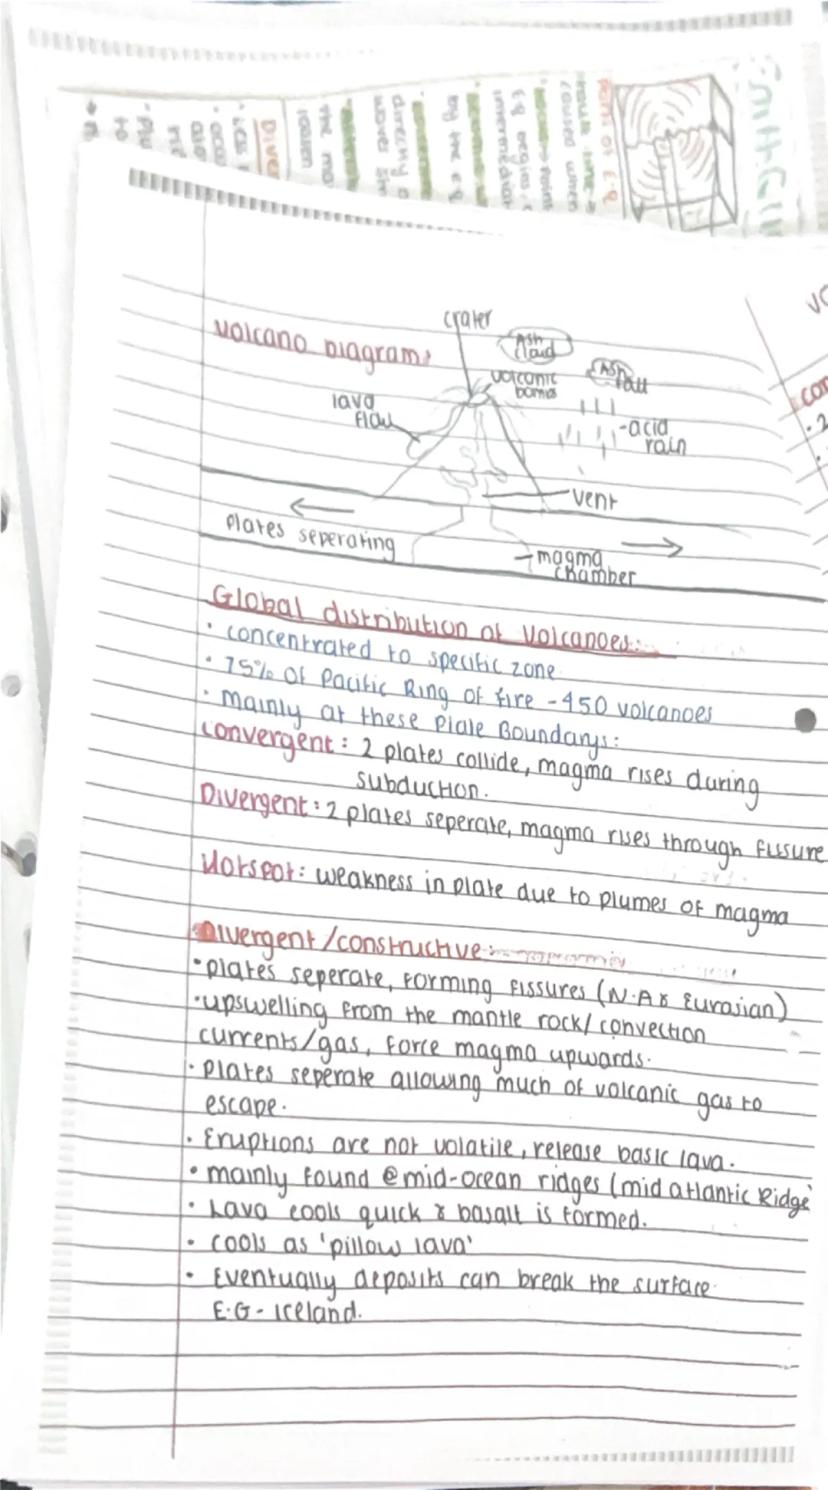 Parts of E.Q
caused when
by the e.q
the ma
crater
Volcano Diagram:
Ash cloud
volcanic bombs
Ash fall
lava flow
-acid rain
vent
plates seperating
magma chamber
Global distribution of Volcanoes:
· concentrated to specific zone
· 75% of Pacific Ring of fire - 450 volcanoes
· mainly at these Plate Boundarys:
Convergent: 2 plates collide, magma rises during
subduction.
Divergent: 2 plates seperate, magma rises through fissure
Hotspot: weakness in plate due to plumes of magma
Divergent/constructive:
· plates seperate, forming fissures (N.A & Eurasian)
· upswelling from the mantle rock/ convection
currents/gas, force magma upwards.
· Plates seperate allowing much of volcanic gas to
escape.
· Eruptions are not volatile, release basic lava.
· mainly found @ mid-ocean ridges (mid atlantic Ridge
· Lava cools quick & basalt is formed.
· cools as 'pillow lava'
· Eventually deposits can break the surface.
E.G - Iceland.